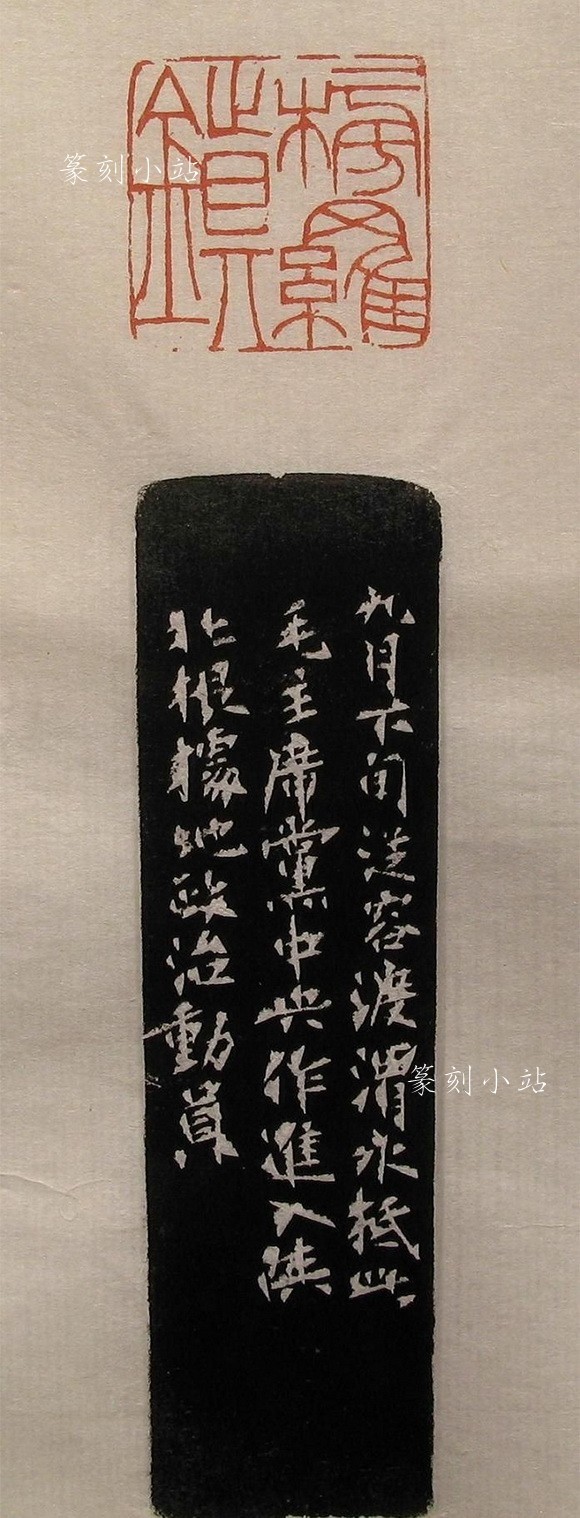 榜羅
鎮
篆刻小站
九月下旬從容渡渭水抵此
毛主席黨中央作進入陝
北根據地政治動員
篆刻小站